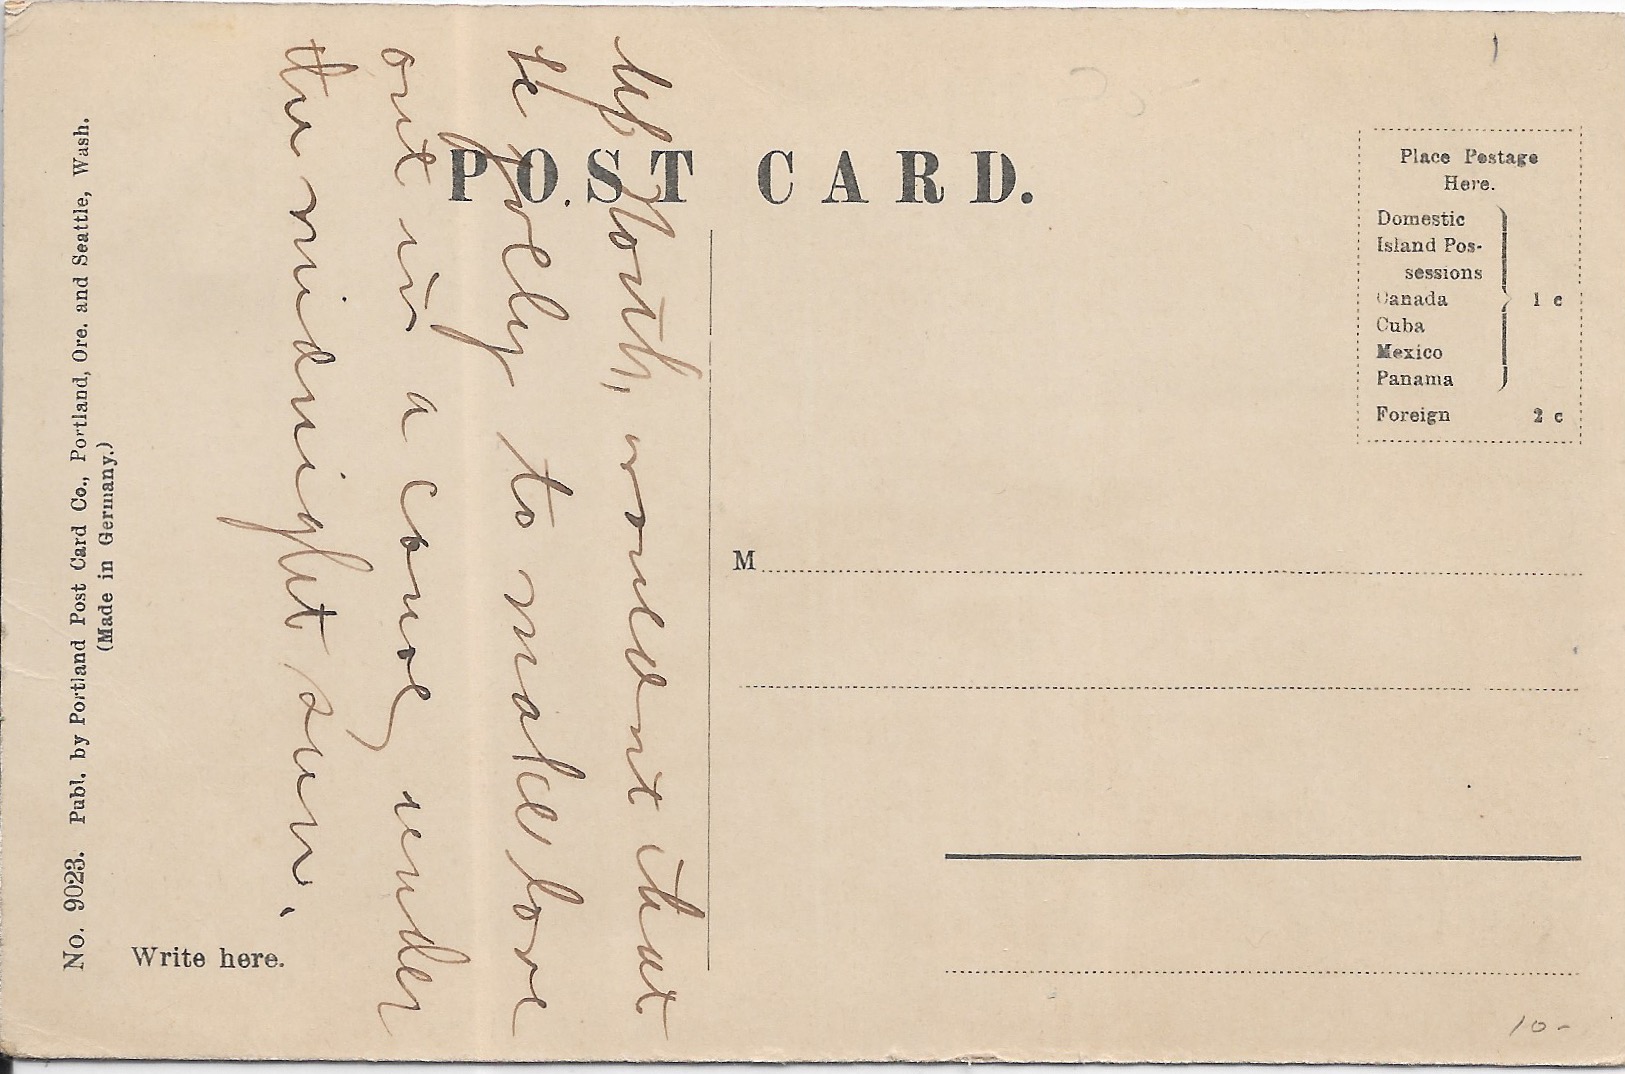 POST CARD.
Place Postage
Here.
Domestic
Island Pos-
sessions
Canada
Cuba
Mexico
Panama
1 c
Foreign 2 c
M
Write here.
No. 9023. Publ. by Portland Post Card Co., Portland, Ore. and Seattle, Wash.
(Made in Germany.)
Up North, wouldnt that
be jolly to make love
out in a canoe, under
the midnight sun.
10-